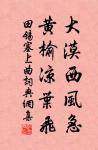 大漠西風急
黃榆涼葉飛
田錫塞上曲詞典網集